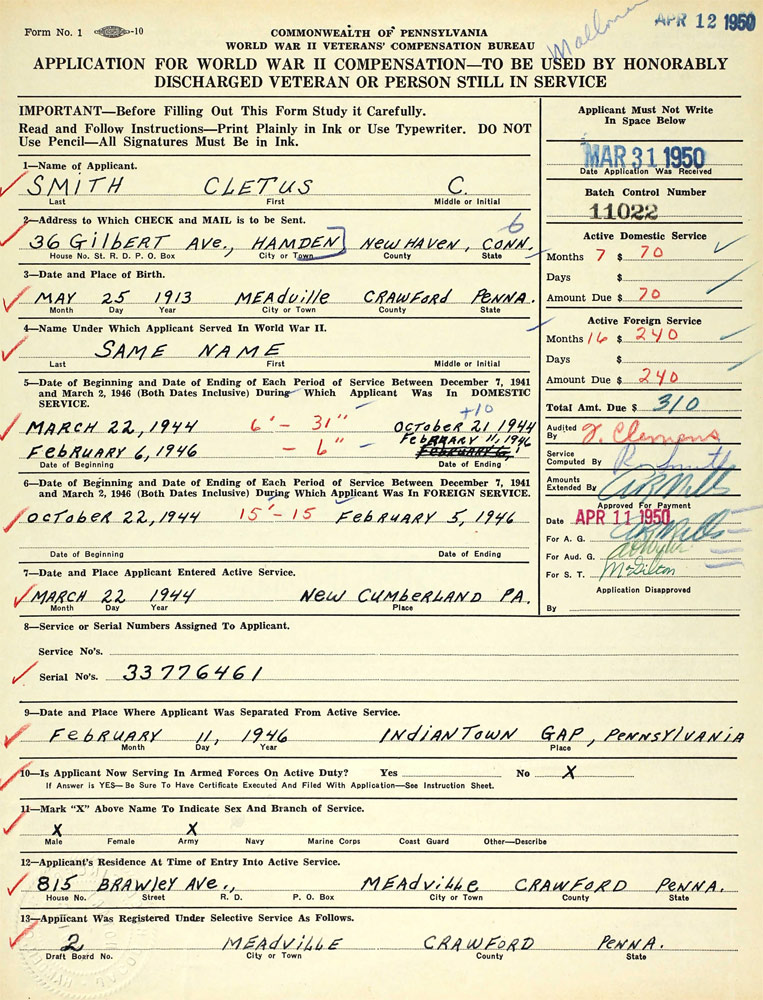 Form No. 1 -10
COMMONWEALTH OF PENNSYLVANIA
WORLD WAR II VETERANS' COMPENSATION BUREAU
APR 12 1950
APPLICATION FOR WORLD WAR II COMPENSATION—TO BE USED BY HONORABLY
DISCHARGED VETERAN OR PERSON STILL IN SERVICE
IMPORTANT—Before Filling Out This Form Study it Carefully.
Read and Follow Instructions—Print Plainly in Ink or Use Typewriter. DO NOT
Use Pencil—All Signatures Must Be in Ink.
1—Name of Applicant.
SMITH CLETUS C.
Last First Middle or Initial
2—Address to Which CHECK and MAIL is to be Sent.
6
36 GILBERT AVE., HAMDEN NEW HAVEN, CONN.
House No. St. R. D. P. O. Box City or Town County State
3—Date and Place of Birth.
MAY 25 1913 MEADVILLE CRAWFORD PENNA.
Month Day Year City or Town County State
4—Name Under Which Applicant Served In World War II.
SAME NAME
Last First Middle or Initial
5—Date of Beginning and Date of Ending of Each Period of Service Between December 7, 1941
and March 2, 1946 (Both Dates Inclusive) During Which Applicant Was In DOMESTIC
SERVICE.
+10
MARCH 22, 1944 6' - 31" OCTOBER 21 1944
FEBRUARY 6, 1946 - 6" FEBRUARY 11, 1946
FEBRUARY 6,
Date of Beginning Date of Ending
6—Date of Beginning and Date of Ending of Each Period of Service Between December 7, 1941
and March 2, 1946 (Both Dates Inclusive) During Which Applicant Was In FOREIGN SERVICE.
OCTOBER 22, 1944 15' - 15 FEBRUARY 5, 1946
Date of Beginning Date of Ending
7—Date and Place Applicant Entered Active Service.
MARCH 22 1944 NEW CUMBERLAND PA.
Month Day Year Place
Applicant Must Not Write
In Space Below
MAR 31 1950
Date Application Was Received
Batch Control Number
11022
Active Domestic Service
Months 7 $ 70
Days $
Amount Due $ 70
Active Foreign Service
Months 16 $ 240
Days $
Amount Due $ 240
Total Amt. Due $ 310
Audited
By J. Clemens
Service
Computed By R. Smith
Amounts
Extended By
Approved For Payment
Date APR 11 1950
For A. G.
For Aud. G.
For S. T.
Application Disapproved
By
8—Service or Serial Numbers Assigned To Applicant.
Service No's.
Serial No's. 33776461
9—Date and Place Where Applicant Was Separated From Active Service.
FEBRUARY 11, 1946 INDIANTOWN GAP, PENNSYLVANIA
Month Day Year Place
10—Is Applicant Now Serving In Armed Forces On Active Duty? Yes No X
If Answer is YES—Be Sure To Have Certificate Executed And Filed With Application—See Instruction Sheet.
11—Mark "X" Above Name To Indicate Sex And Branch of Service.
X X
Male Female Army Navy Marine Corps Coast Guard Other—Describe
12—Applicant's Residence At Time of Entry Into Active Service.
815 BRAWLEY AVE., MEADVILLE CRAWFORD PENNA.
House No. Street R. D. P. O. Box City or Town County State
13—Applicant Was Registered Under Selective Service As Follows.
2 MEADVILLE CRAWFORD PENNA.
Draft Board No. City or Town County State